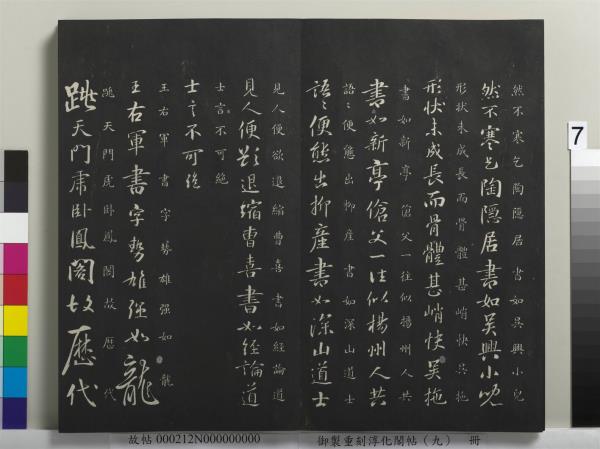 然不寒乞陶隱居書如吳興小兒
然不寒乞陶隱居書如吳興小兒
形狀未成長而骨體甚峭快吳拖
形狀未成長而骨體甚峭快吳拖
書如新亭傖父一往似揚州人共
書如新亭傖父一往似楊州人共
語〻便態出柳產書如深山道士
語〻便態出柳產書如深山道士
見人便欲退縮曹喜書如經論道
見人便欲退縮曹喜書如經論道
士言不可絕
士言不可絕
王右軍書字勢雄强如龍
王右軍書字勢雄强如龍
跳天門虎臥鳳閣故歷代
跳天門虎臥鳳閣故歷代
7
故帖 000212N000000000
御製重刻淳化閣帖(九) 冊